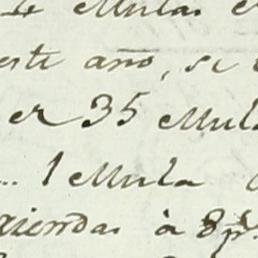 4 Mulas
este año, se
er 35 Mula
... 1 Mula
aiendas à 8 p.